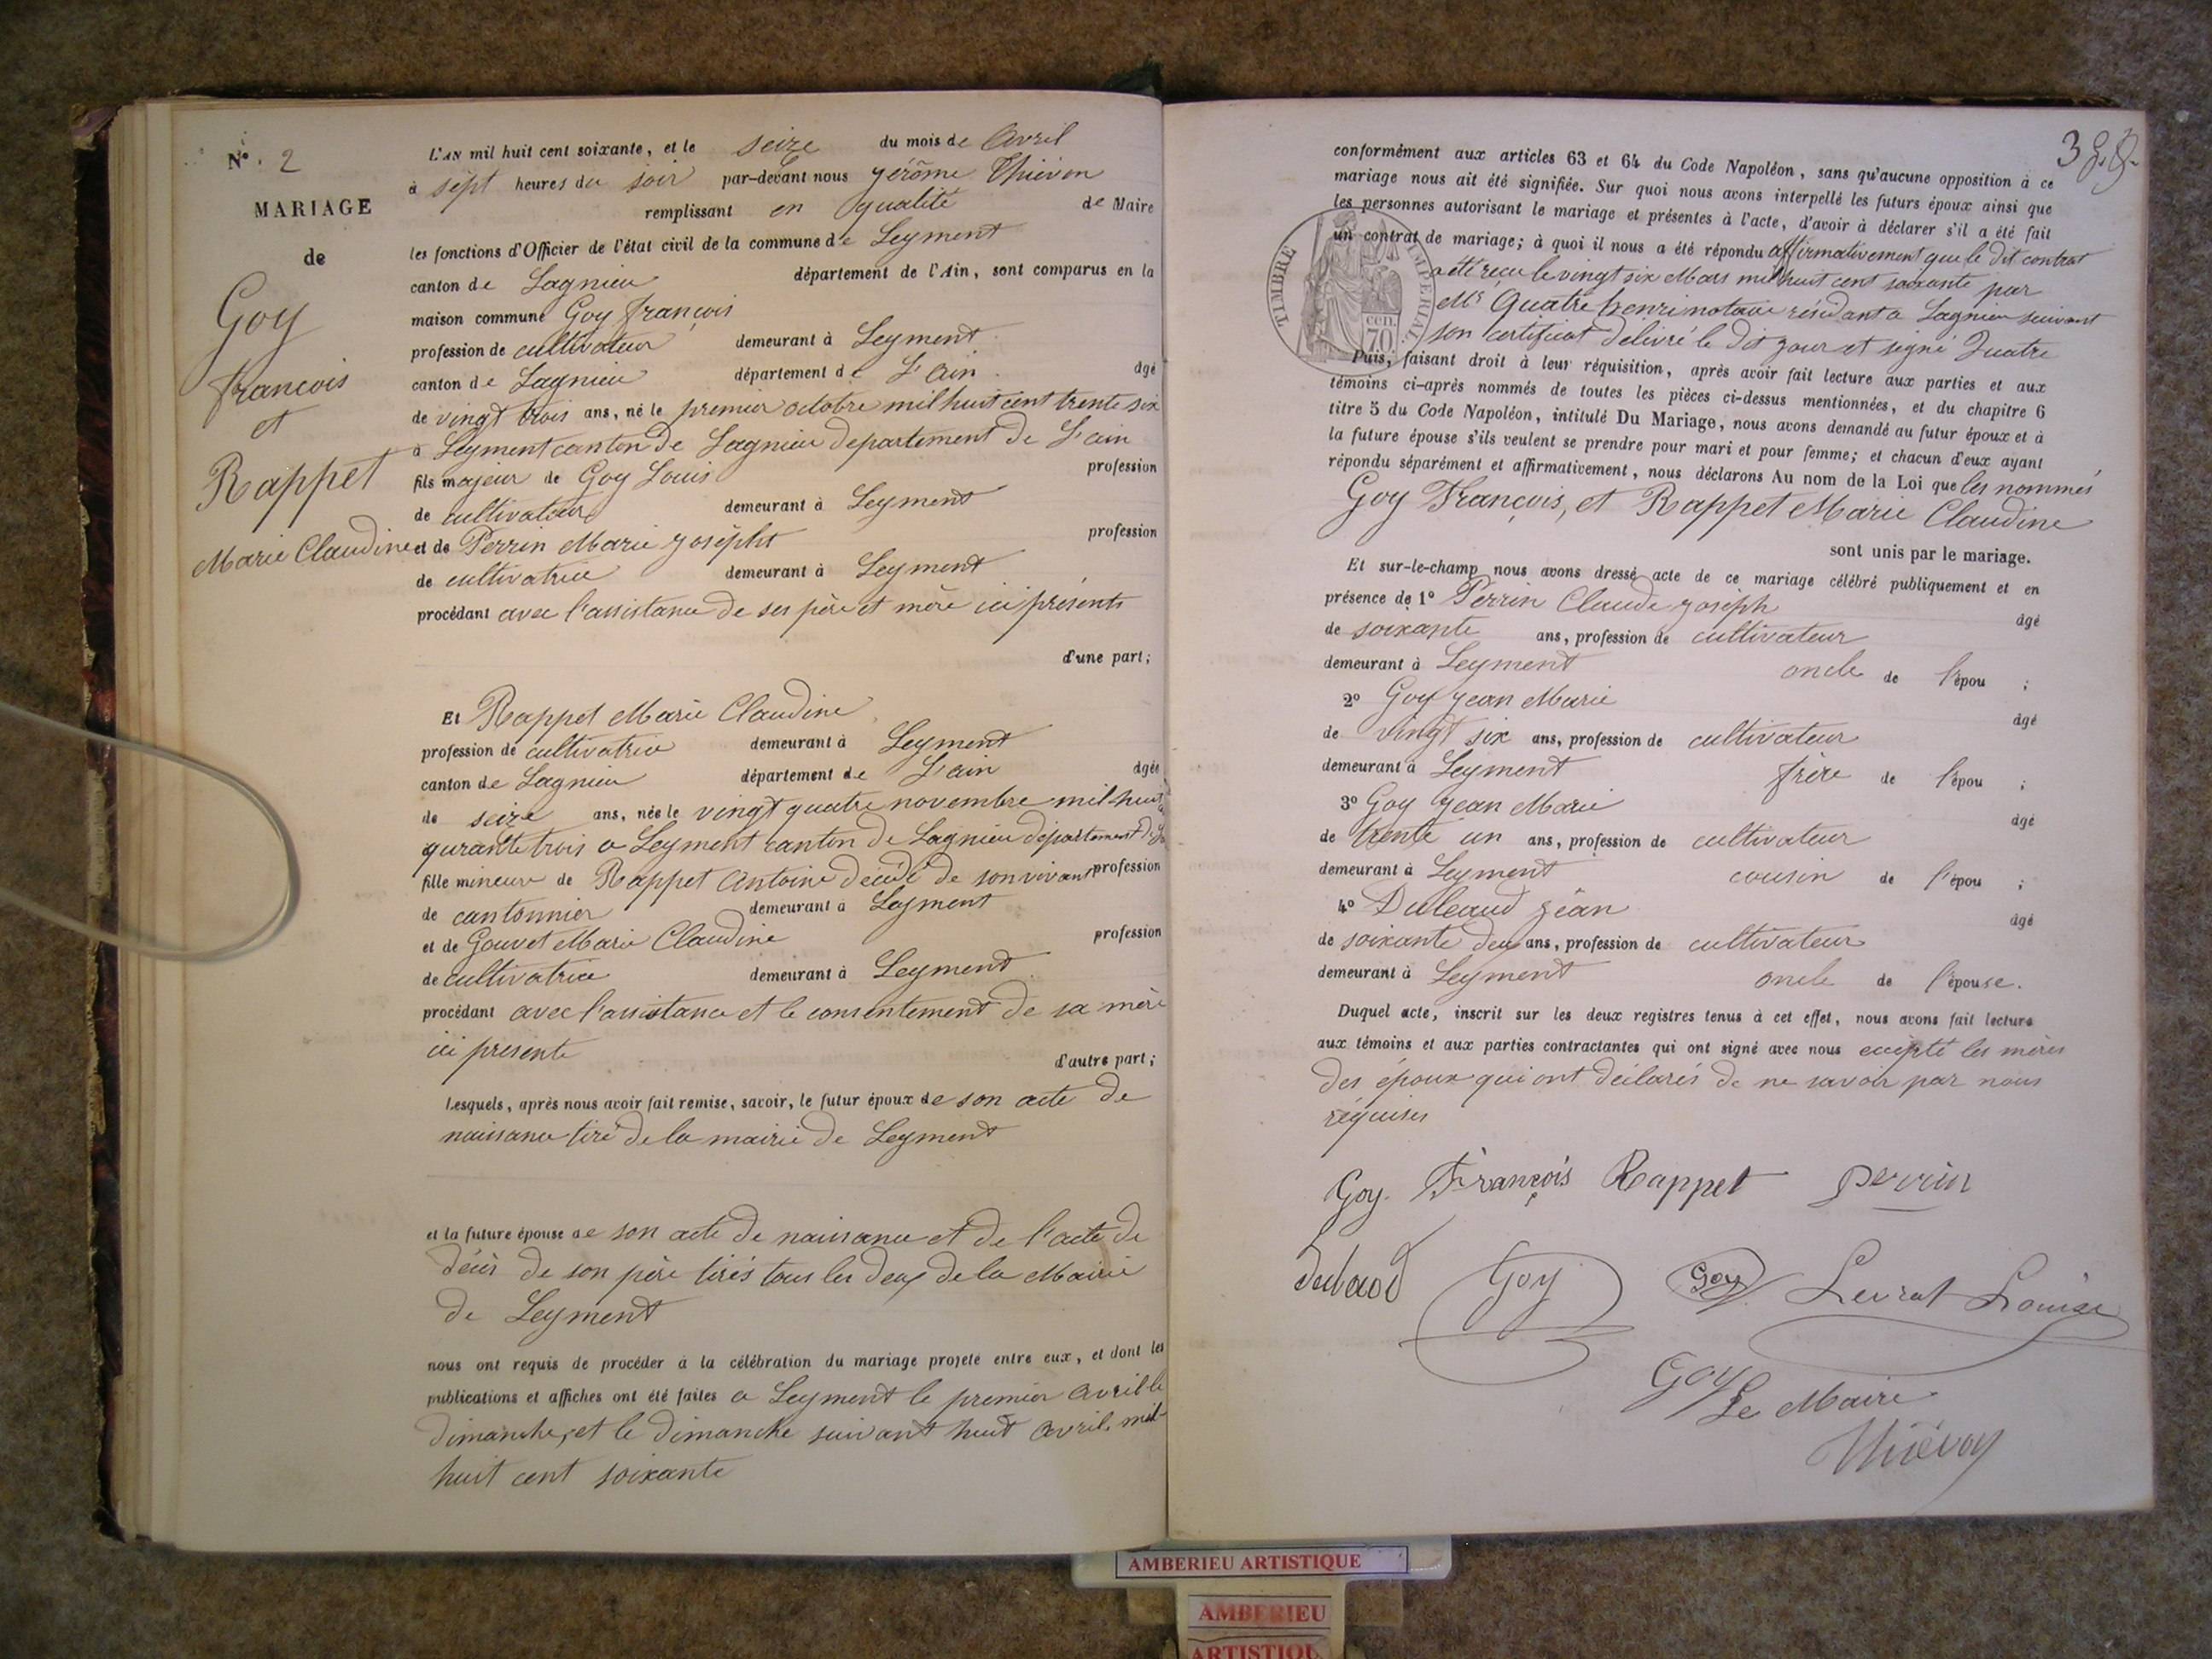 N°. 2
MARIAGE
de
Goy
francois
et
Rappet
Marie Claudine
L'AN mil huit cent soixante, et le seize du mois de Avril
à sept heures du soir par-devant nous gérôme Thiévon
remplissant en qualité de Maire
les fonctions d'Officier de l'état civil de la commune de Leyment
canton de Lagnieu département de l'Ain, sont comparus en la
maison commune Goy françois
profession de cultivateur demeurant à Leyment
canton de Lagnieu département de L'ain âgé
de vingt trois ans, né le premier octobre mil huit cent trente six
à Leyment canton de Lagnieu departement de L'ain
fils majeur de Goy Louis profession
de cultivateur demeurant à Leyment
et de Perrin Marie josephe profession
de cultivatrice demeurant à Leyment
procédant avec l'assistance de ses père et mère ici présents
d'une part;
Et Rappet Marie Claudine
profession de cultivatrice demeurant à Leyment
canton de Lagnieu département de L'ain âgée
de seize ans, née le vingt quatre novembre mil huit
qurante trois a Leyment canton de Lagnieu département
fille mineure de Rappet Antoine décédé de son vivant profession
de cantonnier demeurant à Leyment
et de Gouvet Marie Claudine profession
de cultivatrice demeurant à Leyment
procédant avec l'assistance et le consentement de sa mère
ici presente
d'autre part;
Lesquels, après nous avoir fait remise, savoir, le futur époux de son acte de
naissance tiré de la mairie de Leyment
et la future épouse de son acte de naissance et de l'acte de
décès de son père tirés tous les deux de la Mairie
de Leyment
nous ont requis de procéder à la célébration du mariage projeté entre eux, et dont les
publications et affiches ont été faites a Leyment le premier avril le
dimanche, et le dimanche suivant huit avril, mil
huit cent soixante
conformément aux articles 63 et 64 du Code Napoléon, sans qu'aucune opposition à ce
mariage nous ait été signifiée. Sur quoi nous avons interpellé les futurs époux ainsi que
les personnes autorisant le mariage et présentes à l'acte, d'avoir à déclarer s'il a été fait
un contrat de mariage; à quoi il nous a été répondu affirmativement que le dit contrat
a été reçu le vingt six Mars mil huit cent soixante par
Mr Quatre henri notaire résidant a Lagnieu suivant
son certificat délivré le dit jour et signé Quatre
TIMBRE IMPERIAL
cen.
70
Puis, faisant droit à leur réquisition, après avoir fait lecture aux parties et aux
témoins ci-après nommés de toutes les pièces ci-dessus mentionnées, et du chapitre 6
titre 5 du Code Napoléon, intitulé Du Mariage, nous avons demandé au futur époux et à
la future épouse s'ils veulent se prendre pour mari et pour femme; et chacun d'eux ayant
répondu séparément et affirmativement, nous déclarons Au nom de la Loi que les nommés
Goy François, et Rappet Marie Claudine
sont unis par le mariage.
Et sur-le-champ nous avons dressé acte de ce mariage célébré publiquement et en
présence de 1° Perrin Claude joseph âgé
de soixante ans, profession de cultivateur
demeurant à Leyment oncle de l'épou ;
2° Goy jean Marie âgé
de vingt six ans, profession de cultivateur
demeurant à Leyment frère de l'épou ;
3° Goy jean Marie âgé
de trente un ans, profession de cultivateur
demeurant à Leyment cousin de l'épou ;
4° jean âgé
de soixante deux ans, profession de cultivateur
demeurant à Leyment oncle de l'épouse.
Duquel acte, inscrit sur les deux registres tenus à cet effet, nous avons fait lecture
aux témoins et aux parties contractantes qui ont signé avec nous les mères
des époux qui ont déclarés de ne savoir par nous
réquises
Goy. François Rappet perrin
Goy Goy Levrat Louise
Goy
Le Maire
Thiévon
AMBERIEU ARTISTIQUE
AMBERIEU
ARTISTIQU